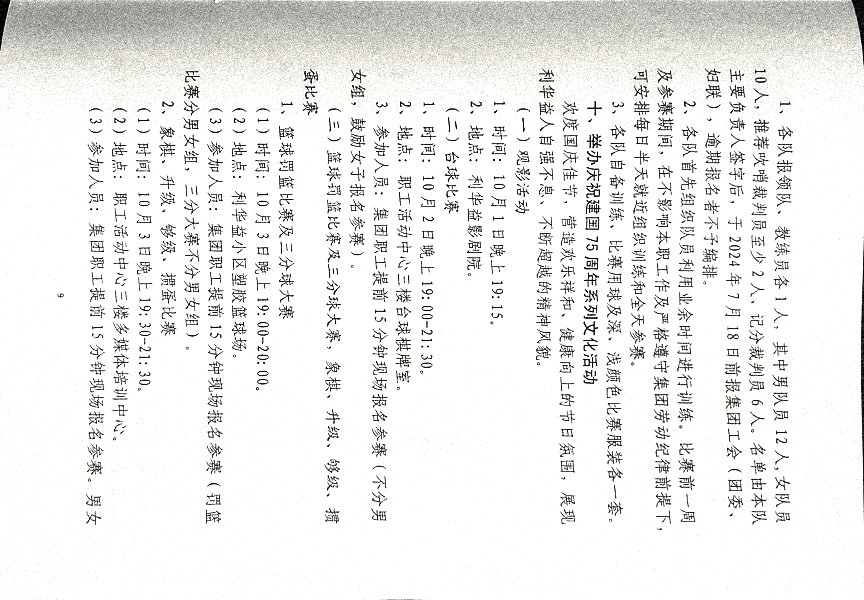 1、各队报领队、教练员各 1 人，其中男队员 12 人，女队员
10 人，推荐吹哨裁判员至少 2 人，记分裁判员 6 人。名单由本队
主要负责人签字后，于 2024 年 7 月 18 日前报集团工会（团委、
妇联），逾期报名者不予编排。
2、各队首先组织队员利用业余时间进行训练。比赛前一周
及参赛期间，在不影响本职工作及严格遵守集团劳动纪律前提下，
可安排每日半天就近组织训练和全天参赛。
3、各队自备训练、比赛用球及深、浅颜色比赛服装各一套。
十、举办庆祝建国 75 周年系列文化活动
欢度国庆佳节，营造欢乐祥和、健康向上的节日氛围，展现
利华益人自强不息、不断超越的精神风貌。
（一）观影活动
1、时间：10 月 1 日晚上 19:15。
2、地点：利华益影剧院。
（二）台球比赛
1、时间：10 月 2 日晚上 19:00-21:30。
2、地点：职工活动中心三楼台球棋牌室。
3、参加人员：集团职工提前 15 分钟现场报名参赛（不分男
女组，鼓励女子报名参赛）。
（三）篮球罚篮比赛及三分球大赛、象棋、升级、够级、掼
蛋比赛
1、篮球罚篮比赛及三分球大赛
（1）时间：10 月 3 日晚上 19:00-20:00。
（2）地点：利华益小区塑胶篮球场。
（3）参加人员：集团职工提前 15 分钟现场报名参赛（罚篮
比赛分男女组，三分大赛不分男女组）。
2、象棋、升级、够级、掼蛋比赛
（1）时间：10 月 3 日晚上 19:30-21:30。
（2）地点：职工活动中心三楼多媒体培训中心。
（3）参加人员：集团职工提前 15 分钟现场报名参赛。男女
9